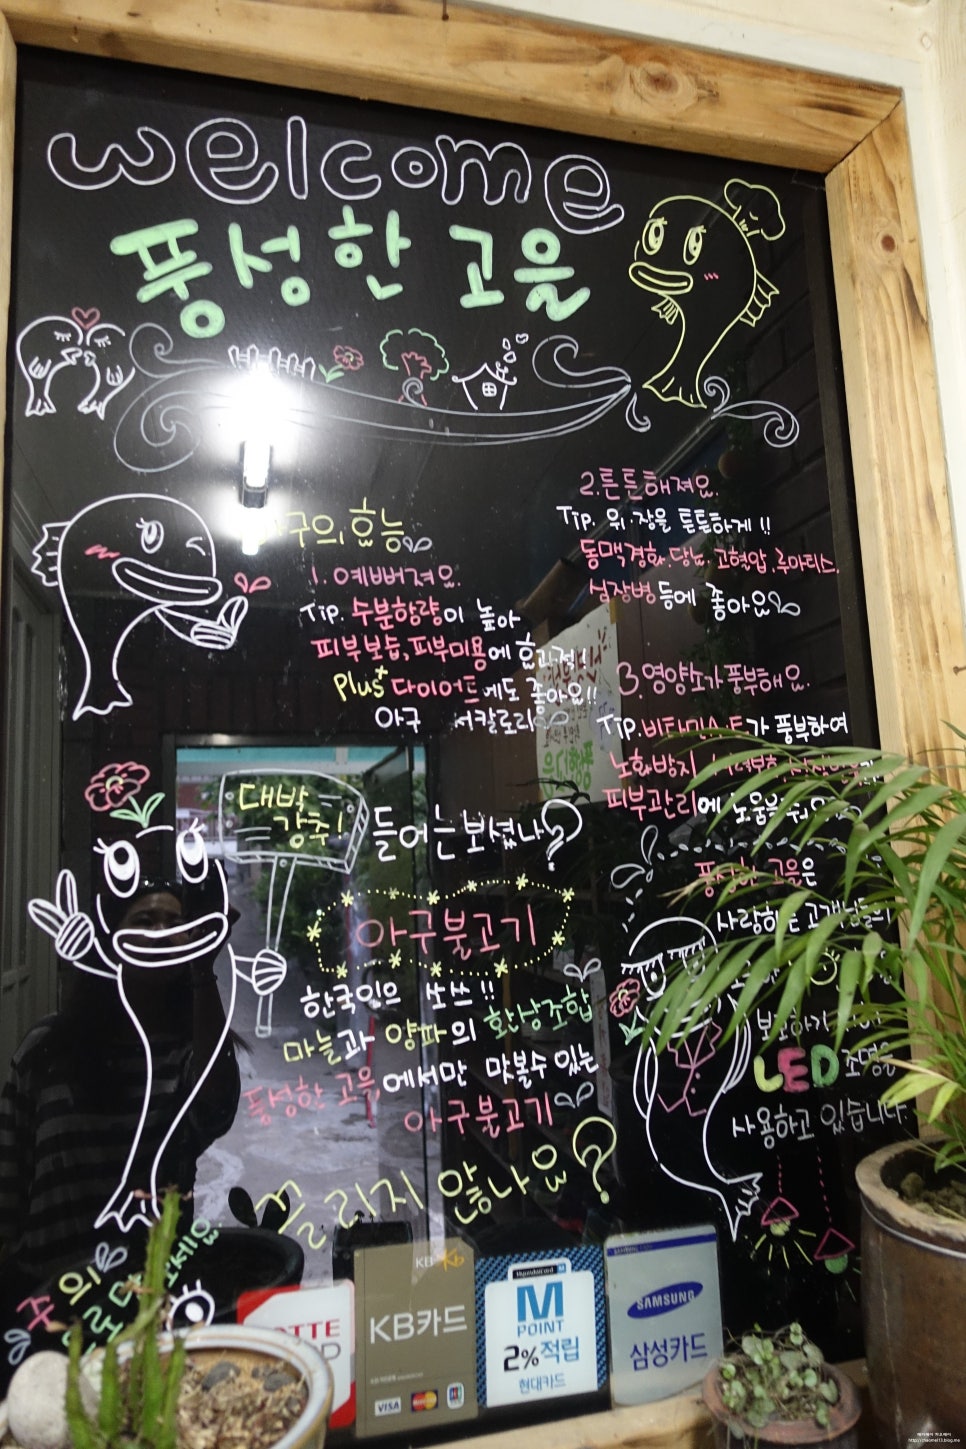 welcome
풍성한 고을
아구의 효능
1. 예뻐져요.
Tip. 수분함량이 높아
피부보습, 피부미용에 효과적!!
Plus+ 다이어트에도 좋아요!!
아구 저칼로리
2. 튼튼해져요.
Tip. 위.장을 튼튼하게!!
동맥경화.당뇨.고혈압.루마티스.
심장병등에 좋아요
3. 영양소가 풍부해요.
Tip. 비타민A.E가 풍부하여
노화방지
피부관리에 도움을
대박
강추!
들어는 보셨나?
아구불고기
한국인은 쏘쓰!!
마늘과 양파의 환상조합
풍성한 고을에서만 맛볼수 있는
아구불고기
끌리지 않나요?
풍성한 고을은
사랑하는 고객님들의
보호하기
LED 조명을
사용하고 있습니다.
주의
KB
KB카드
VISA
MasterCard
JCB
HyundaiCard M
M
POINT
2% 적립
현대카드
SAMSUNG
삼성카드